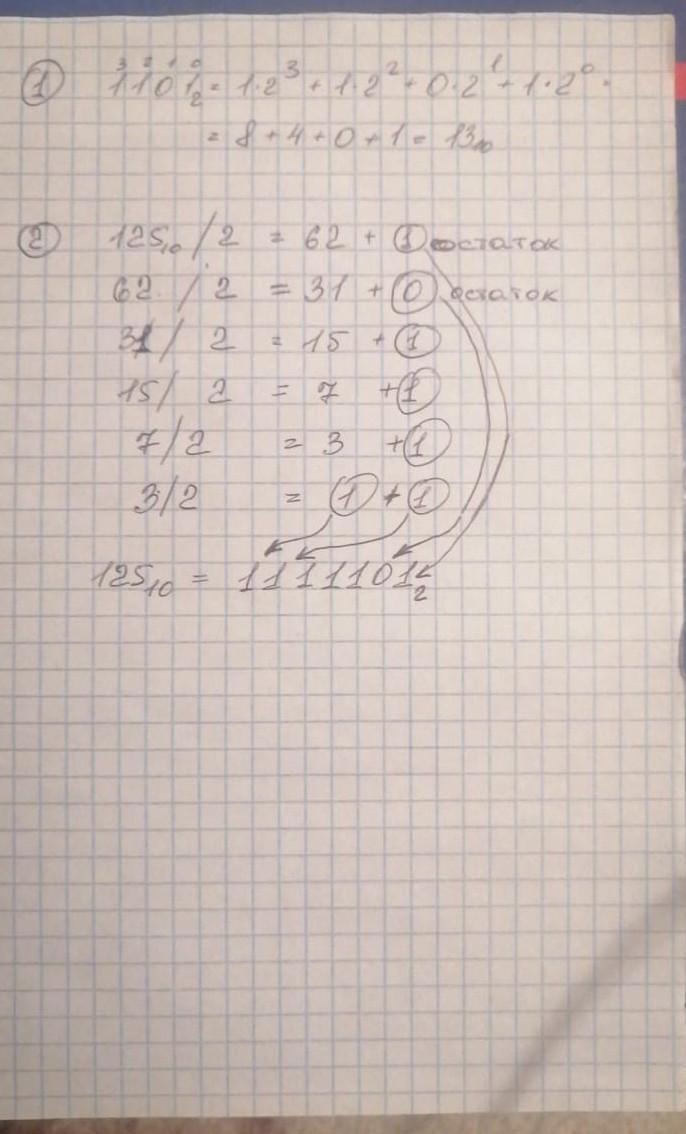 ① 1³1²0¹1⁰₂ = 1·2³ + 1·2² + 0·2¹ + 1·2⁰ =
= 8 + 4 + 0 + 1 = 13₁₀
② 125₁₀ / 2 = 62 + 1 остаток
62 / 2 = 31 + 0 остаток
31 / 2 = 15 + 1
15 / 2 = 7 + 1
7 / 2 = 3 + 1
3 / 2 = 1 + 1
125₁₀ = 1111101₂